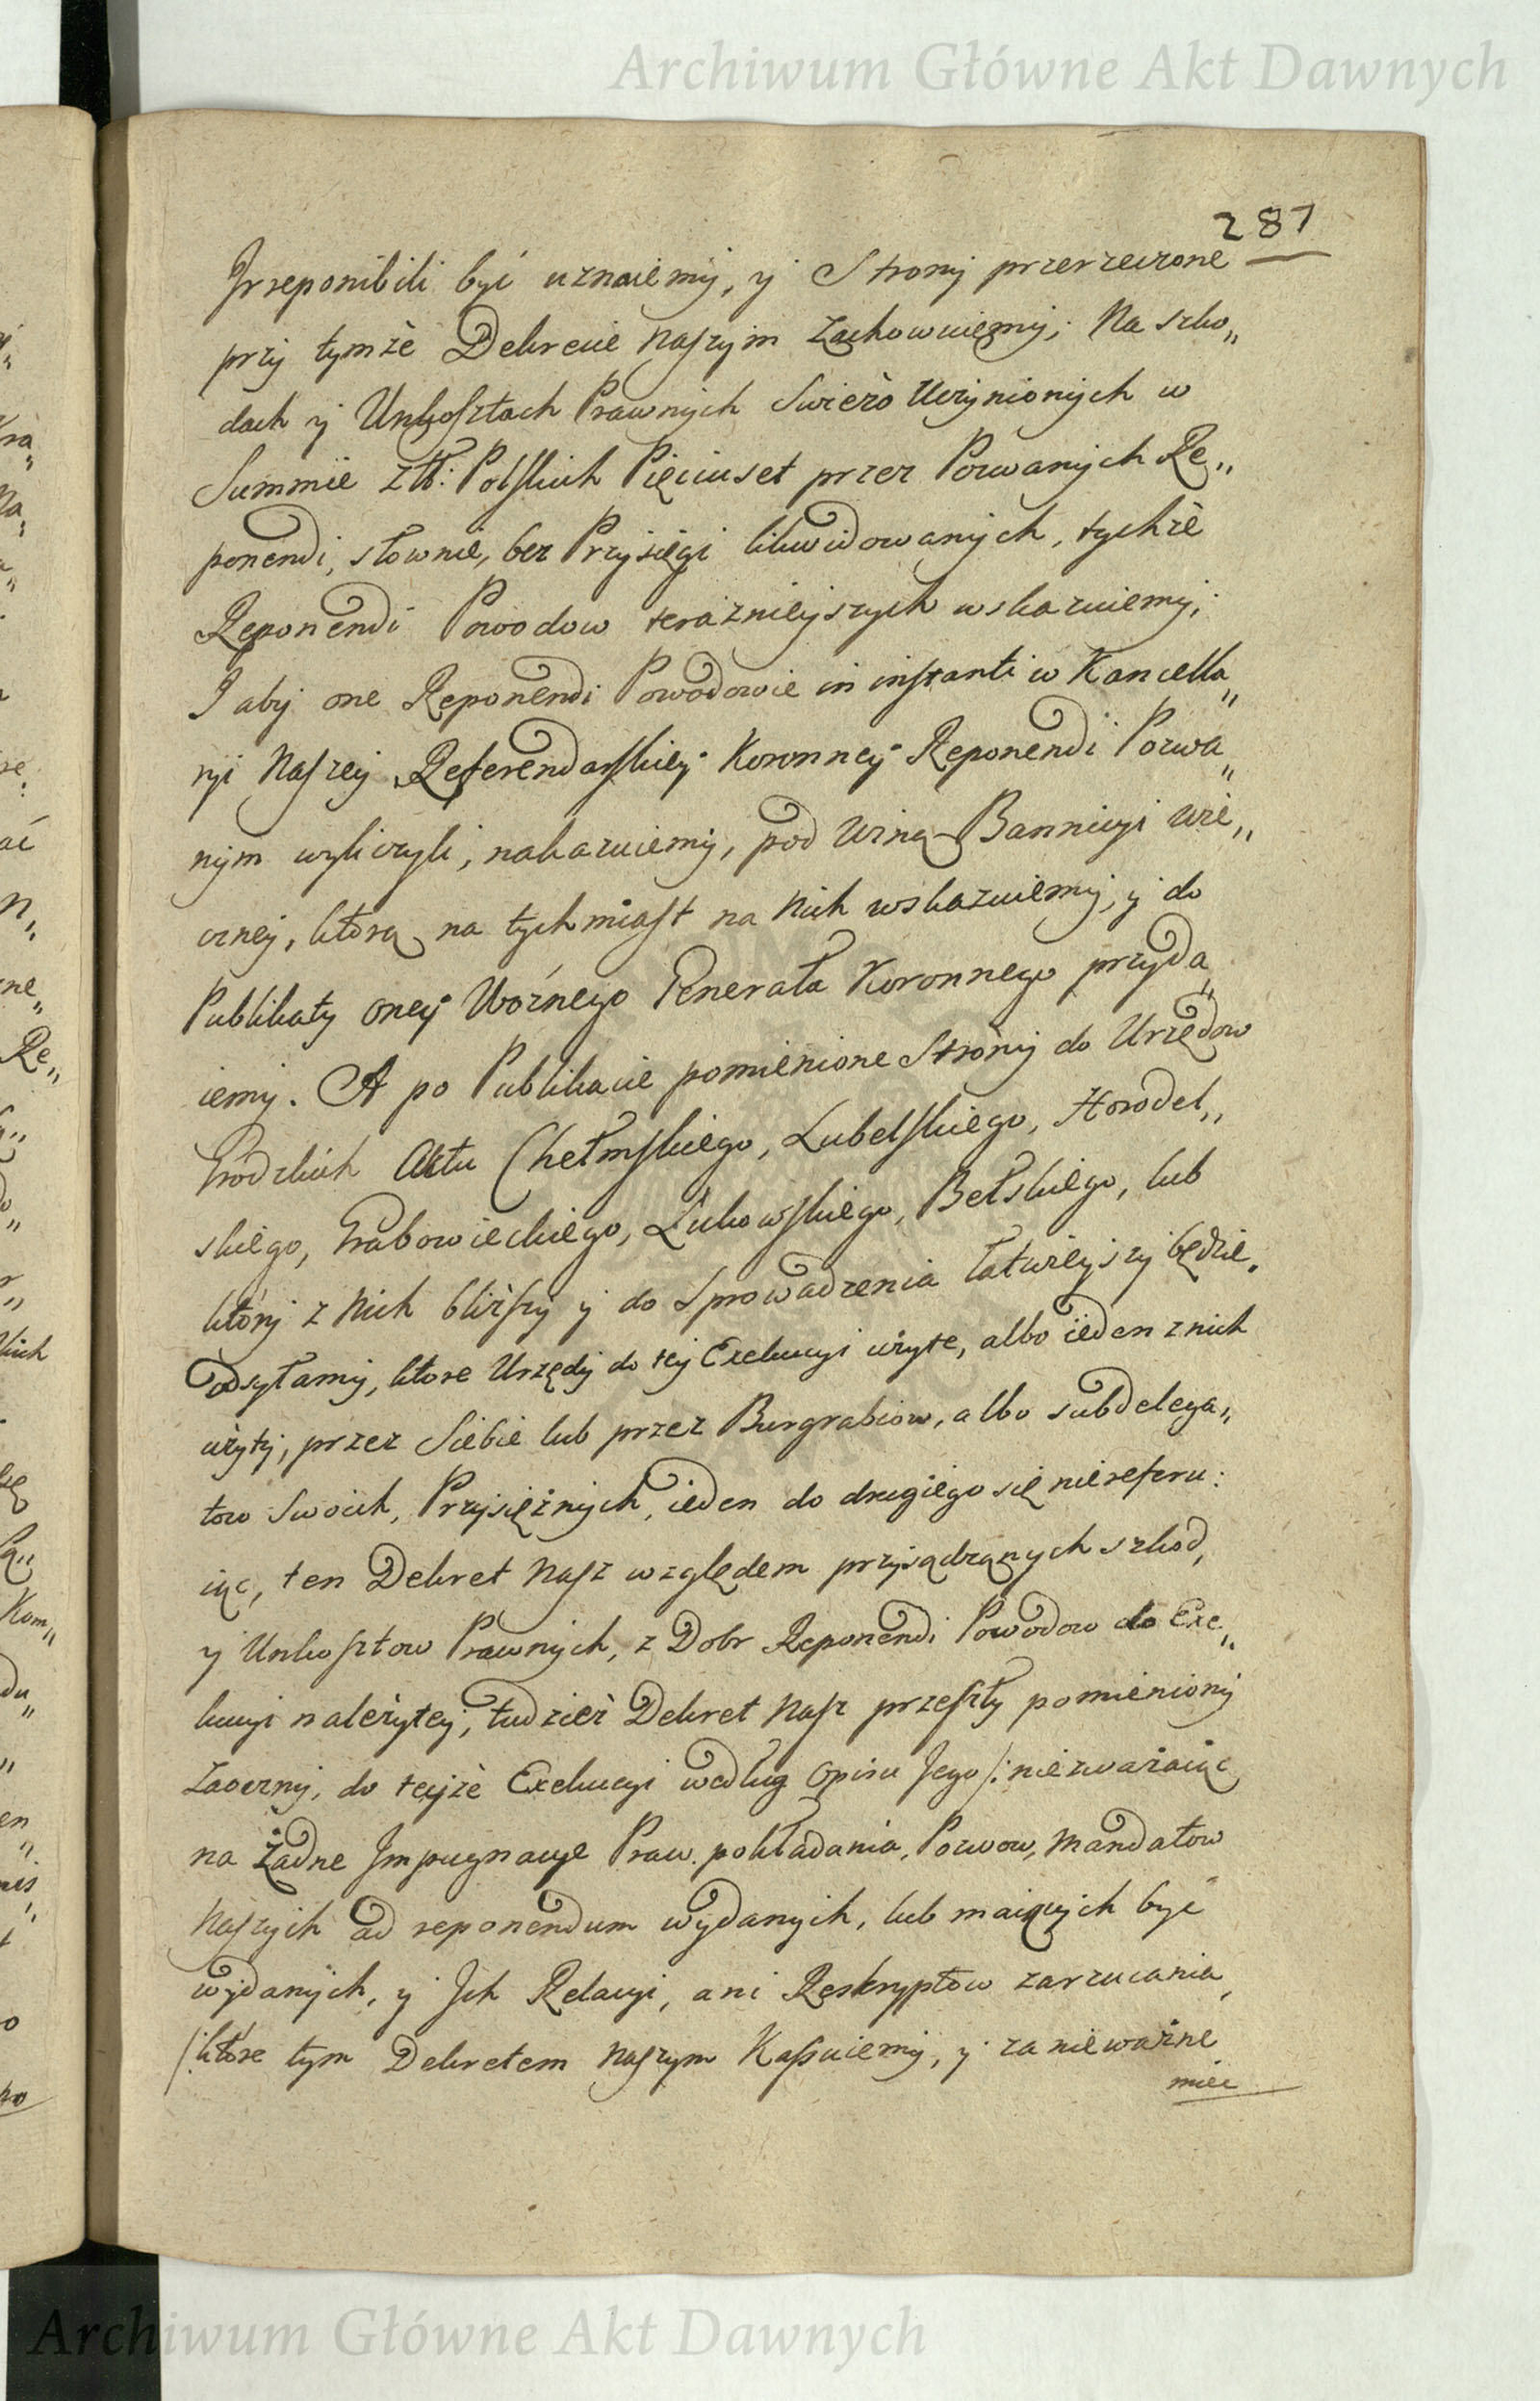 Archiwum Główne Akt Dawnych
287
Jrreponibili być uznaiemy, y Strony przerzeczone
przy tymże Dekrecie Naszym zachowuiemy; Na szko„
dach y Unkosztach Prawnych Swieżo Uczynionych w
Summie Złł: Polskich Pięciuset przez Pozwanych Re„
ponendi, słownie, bez Przysięgi likwidowanych, tychże
Reponendi Powodow terazniejszych wskazuiemy;
I aby one Reponendi Powodowie in instanti w Kancella„
ryi Naszey Referendarskiey Koronney Reponendi Pozwa„
nym wyliczyli, nakazuiemy, pod Winą Bannicyi Wie„
czney, ktorą na tychmiast na Nich wskazuiemy, y do
Publikaty oney Woźnego Generała Koronnego przyda„
iemy. A po Publikacie pomienione Strony do Urzędow
Grodzkich Aktu Chełmskiego, Lubelskiego, Horodel„
skiego, Grabowieckiego, Łukowskiego, Bełskiego, lub
ktory z Nich bliższy y do Sprowadzenia łatwieyszy będzie.
Odsyłamy, ktore Urzędy do tey Exekucyi użyte, albo ieden z nich
użyty, przez Siebie lub przez Burgrabiow, albo subdelega„
tow Swoich, Przysiężnych, ieden do drugiego się nie referu:
iąc, ten Dekret Nasz względem przysądzonych szkod,
y Unkosztow Prawnych, z Dobr Reponendi Powodow do Exe„
kucyi należytey, tudzież Dekret Nasz przeszły pomieniony
Zaoczny, do teyże Exekucyi według Opisu Jego /: nie zważaiąc
na żadne Jmpugnacye Praw. pokładania, Pozwow, Mandatow
Naszych ad reponendum wydanych, lub maiących być
wydanych, y Jch Relacyi, ani Reskryptow zarzucania,
/: ktore tym Dekretem Naszym Kassuiemy, y za nieważne
mieć
Archiwum Główne Akt Dawnych